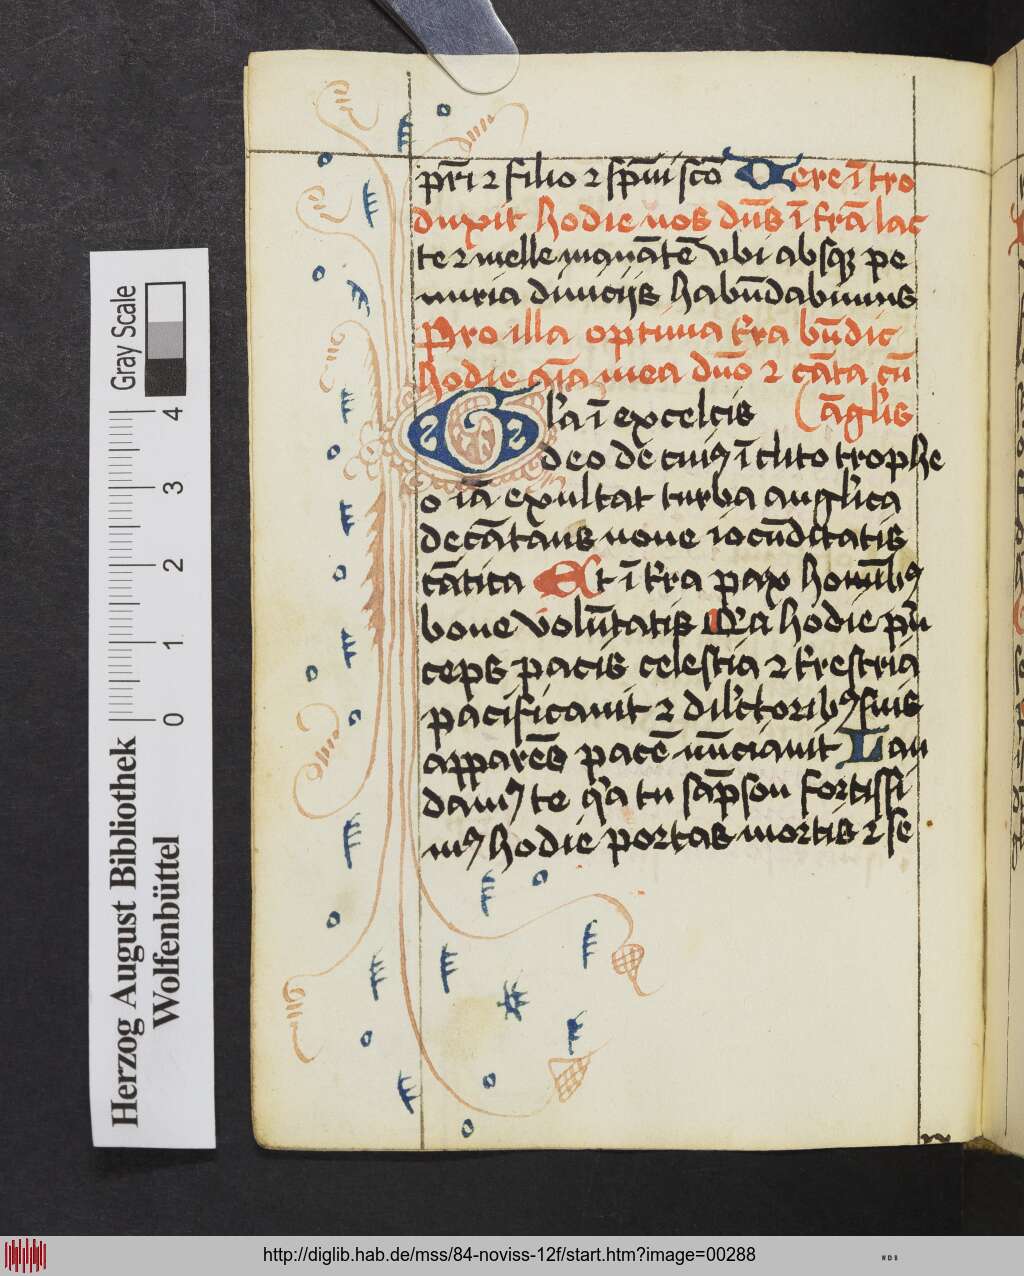 pr̄i ⁊ filio ⁊ sp̄ui scō Vere ī tro
duxit hodie uos dn̄s ī t̄rā lac
te ⁊ melle manātē vbi absqꝫ pe
nuria diuicijs habūdabimus
Pro illa optima t̄ra bn̄dic
hodie aīa mea dn̄o ⁊ cāta cū
Gl'ia ī excelcis
āgl'is
deo de cuiꝰ īclito trophe
o iā exultat turba angl'ica
decātans noue iocūditatis
cātica Et ī t̄ra pax homībꝰ
bone volūtatis Q'a hodie pri̅
ceps pacis celestia ⁊ t̄restria
pacificauit ⁊ dil'ctoribꝰ suis
apparēs pacē nūciauit Lau
damꝰ te q'a tu sāpson fortissi
mꝰ hodie portas mortis ⁊ se
Gray Scale
4
3
2
1
0
Herzog August Bibliothek
Wolfenbüttel
http://diglib.hab.de/mss/84-noviss-12f/start.htm?image=00288